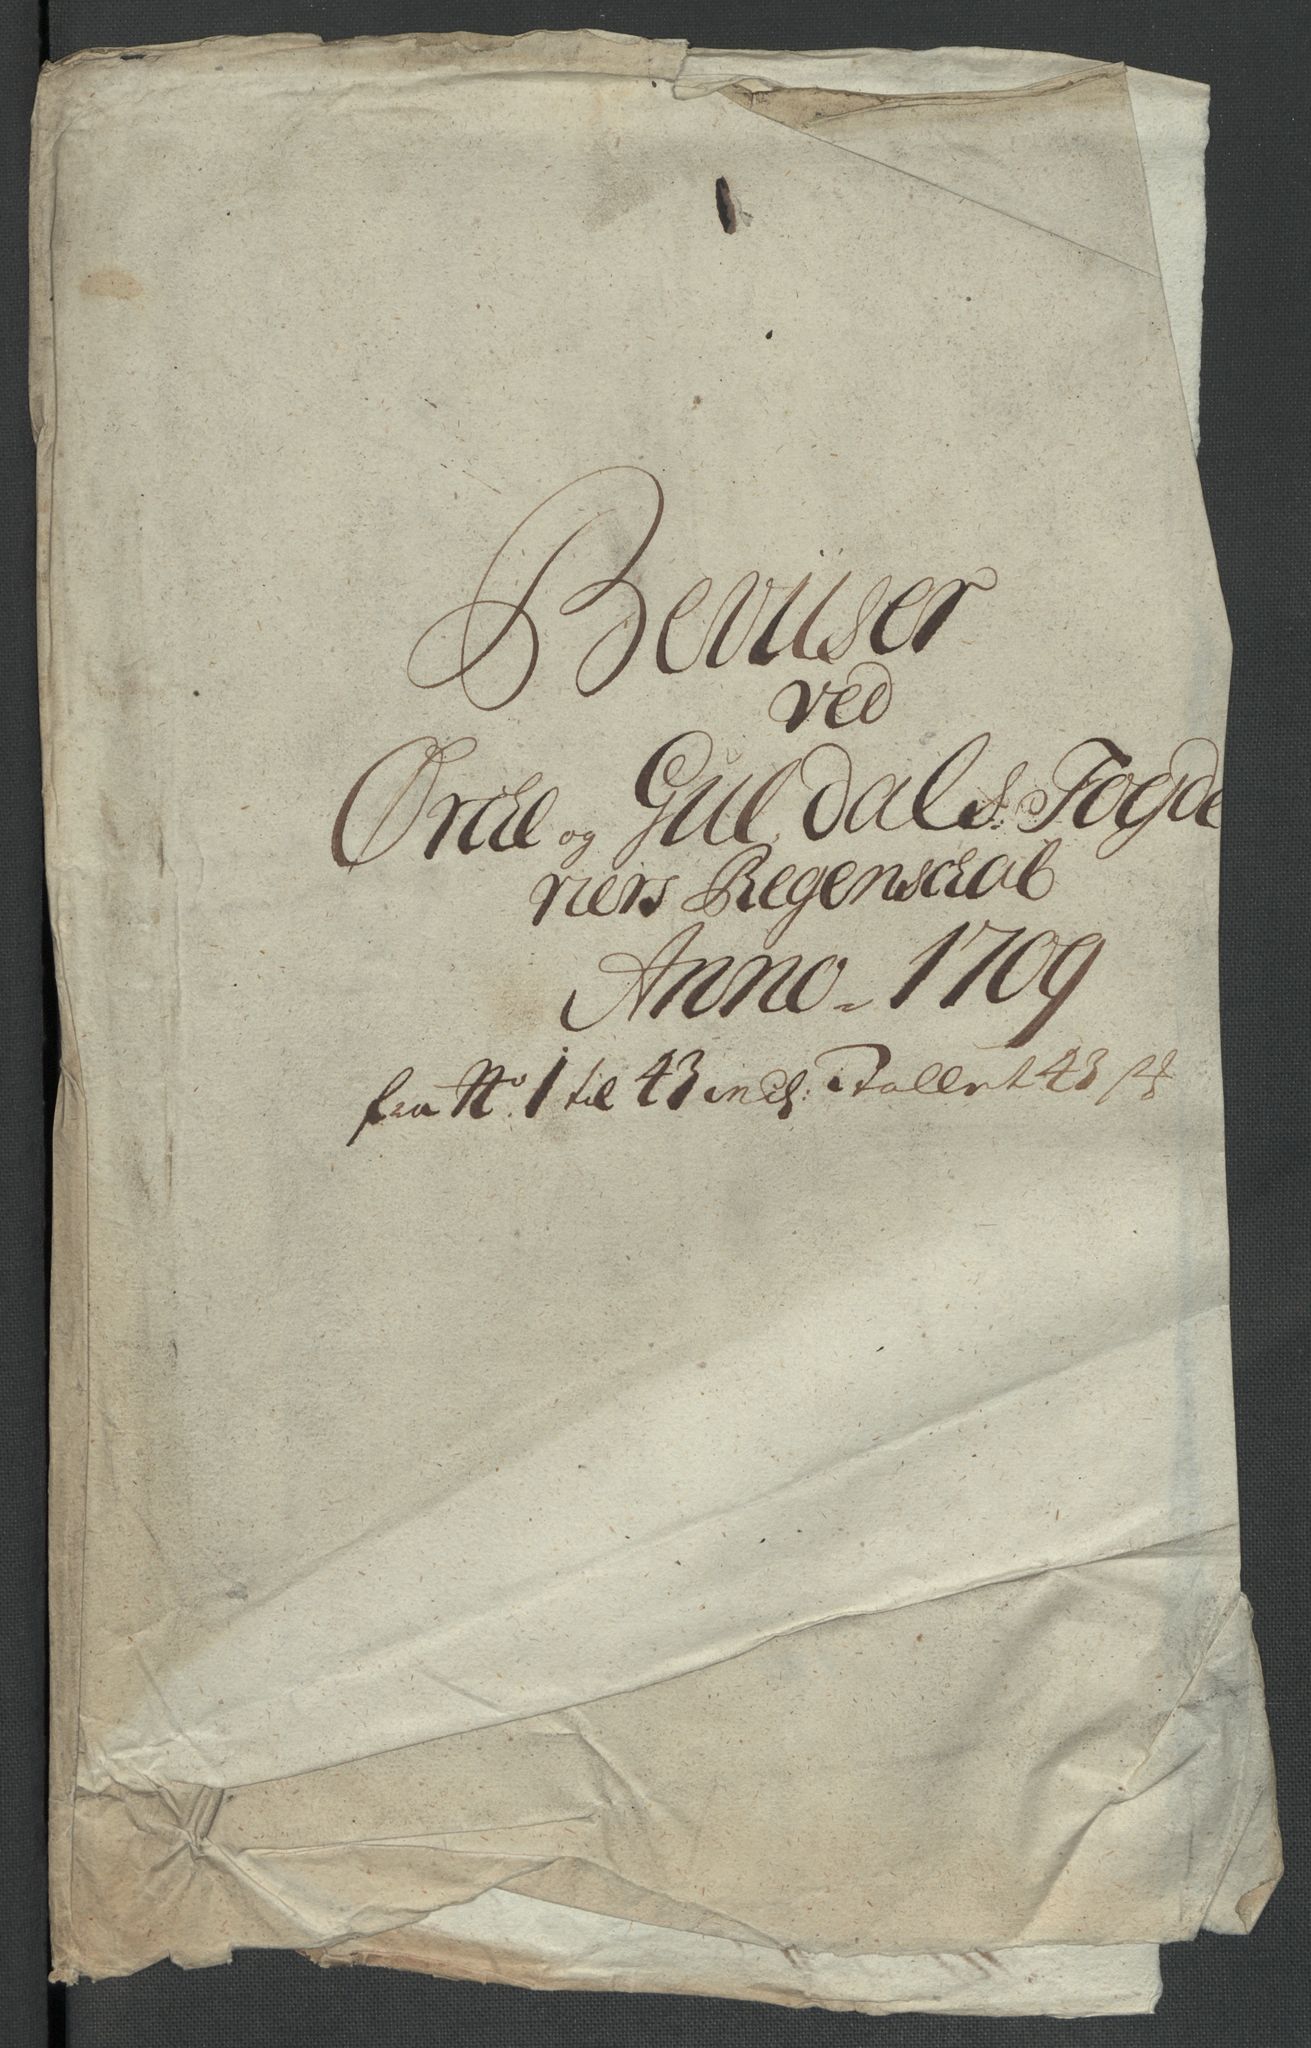 Beviiser
ved
Orckel og Guldals Fogde
riers Regenschab
Anno 1709
fra No. 1 til 43 incl: Tallet 43 st